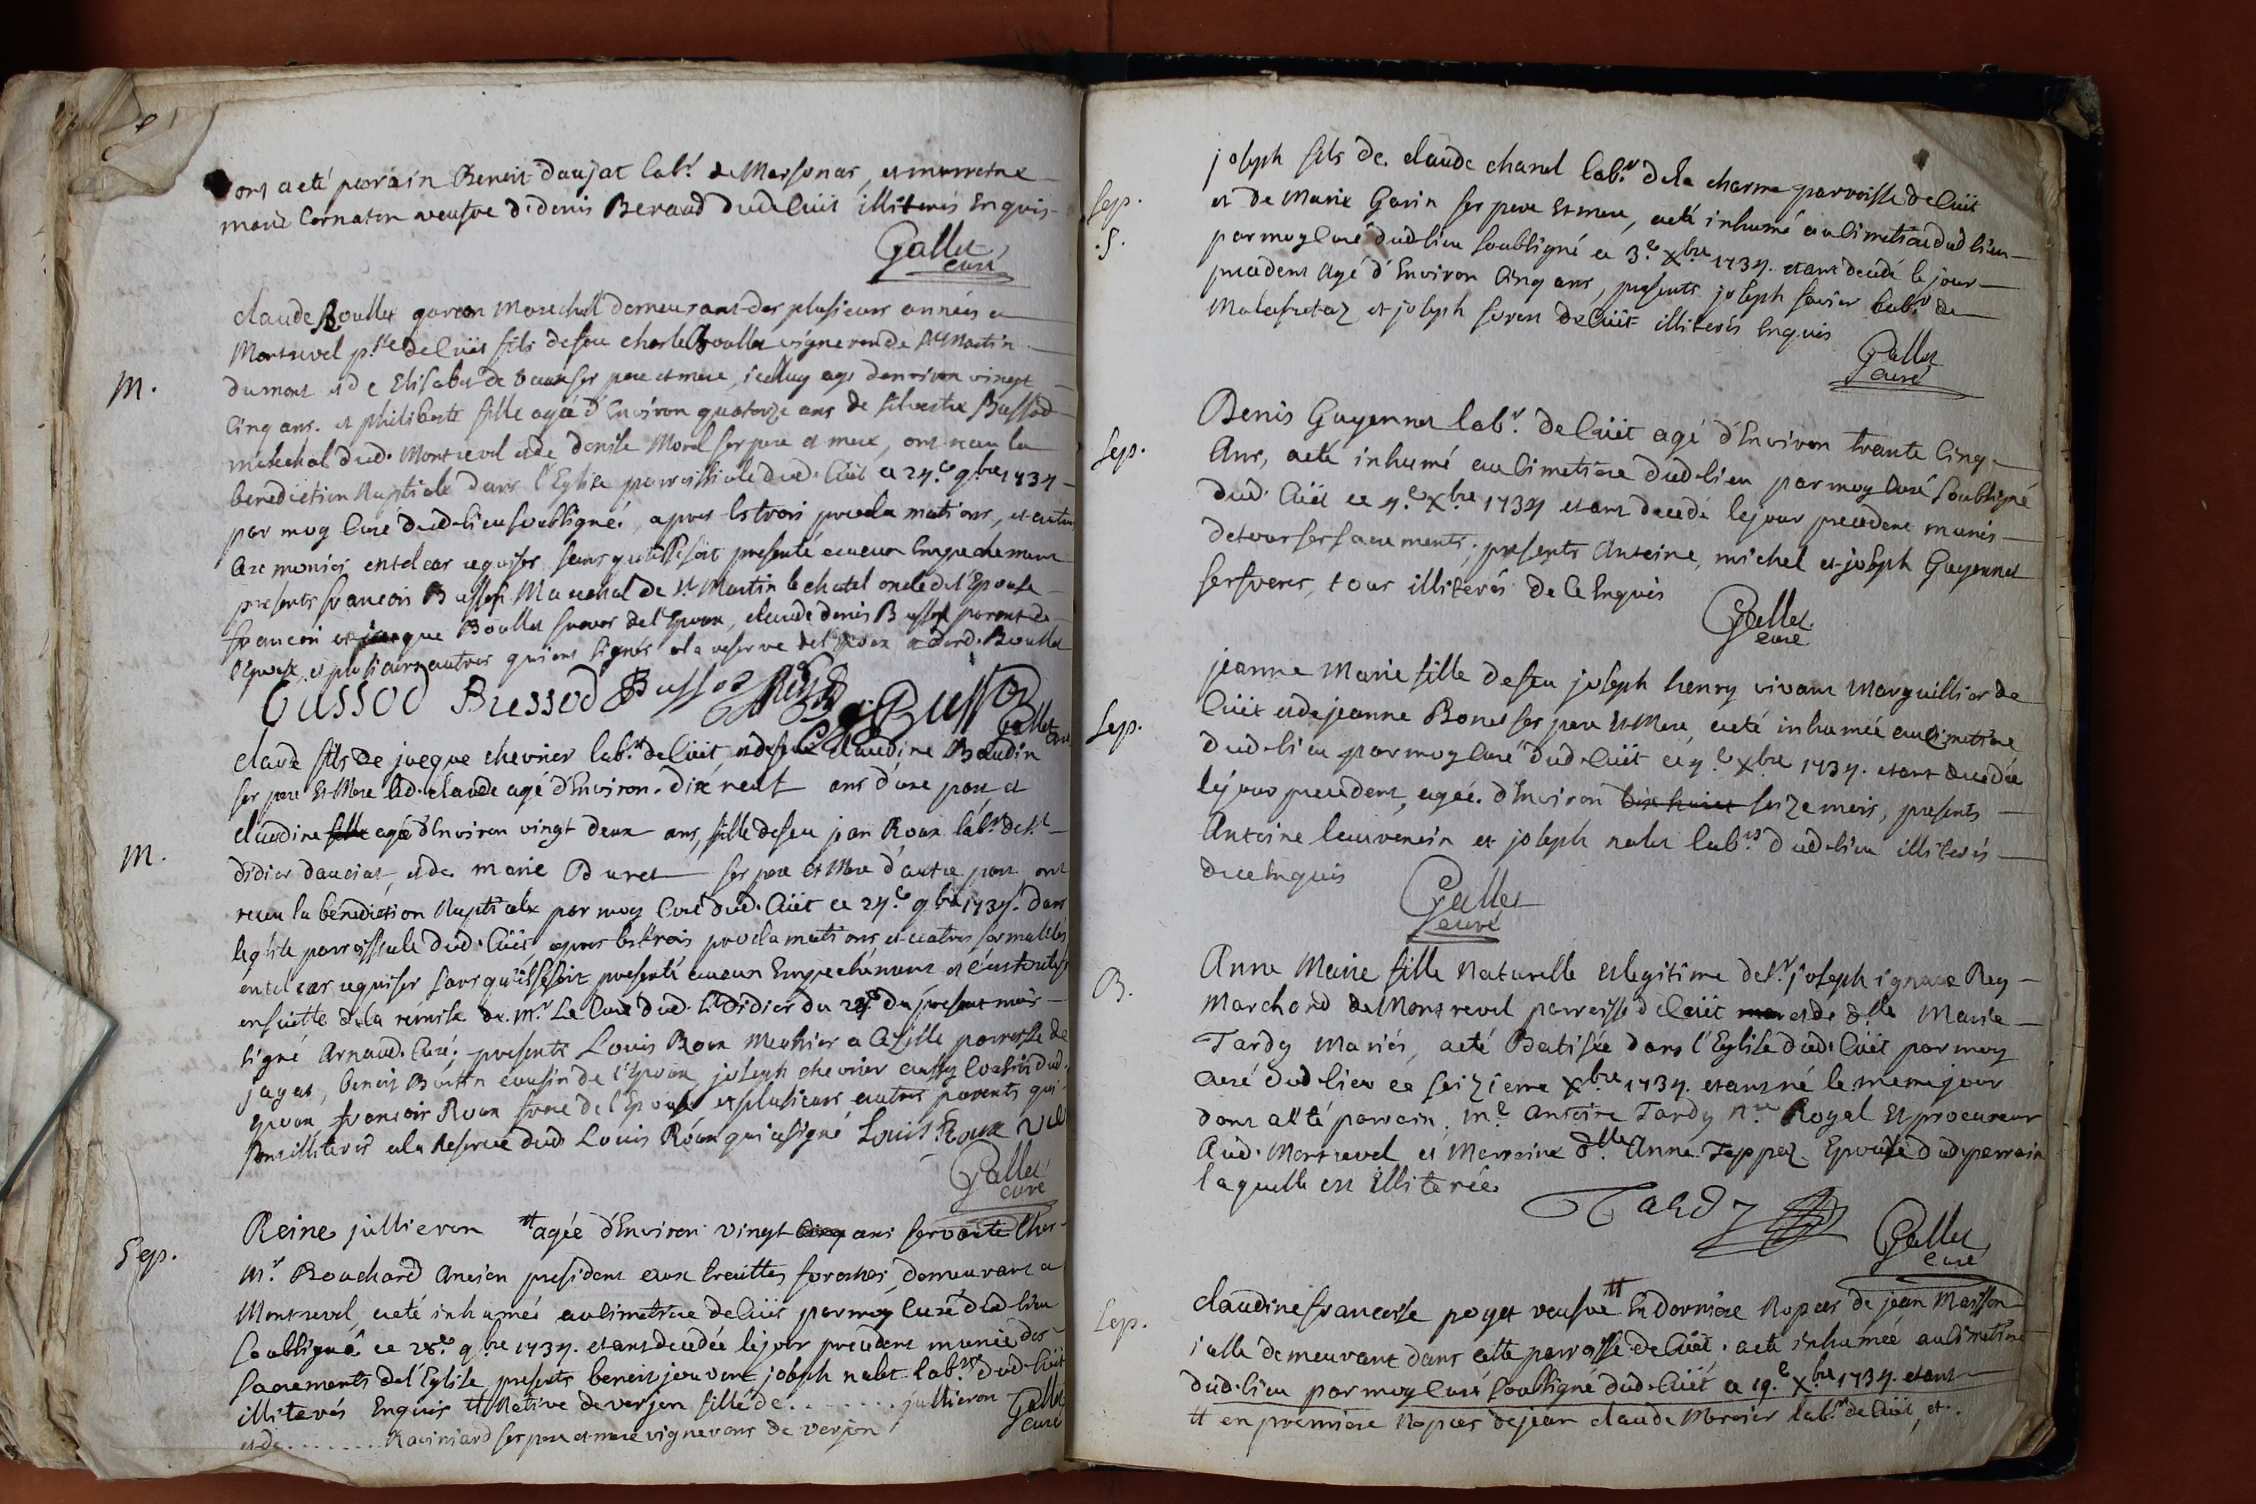 ont a eté parrain Benoit daujat lab.r de Marsonas, et marreine
marie Cornaton veufve de denis Beraud dud. Cüet illiterés Enquis
Gallet
curé
M.
claude Boullet garcon Marechal demeurant des plusieurs années a
Montrevel p.sse de Cüet fils de feu charle Boullet vigneron de St Martin
du mont et de Elisabet de ses pere et mere, iceluy agé denviron vingt
Cinq ans. et philiberte fille agée d'Environ quatorze ans de silvestre Bussod
maréchal dud. Montrevel et de denise Morel ses pere et mere, ont receu la
benediction Nuptiale dans l'Eglise parroissiale dud. Cüet ce 24.e 9bre 1734
par moy Curé dud. lieu soubsigné, apres les trois proclamations, et autres
Ceremonies en tel cas requises sans qu'il se soit presenté aucun Empechement
presents francois Bussod Marechal de St Martin le chatel oncle de l'Epouse
francois et jaque Boullet freres de l'Epoux, claude denis Bussod parent de
l'Epouse, et plusieurs autres qui ont signés a la reserve de l'Epoux et desd. Boullet
Bussod Bussod Bussod Bussod
Gallet curé
M.
claude fils de jacque chevrier lab.r de Cüet, et de feue claudine Baudin
ses pere Et Mere led. claude agé d'Environ dix neuf ans d'une part et
claudine fille agée d'Environ vingt deux ans, fille de feu jean Roux lab.r de St
didier daussiat, et de marie Buret ses pere Et Mere d'autre part ont
receu la bénédiction Nuptiale par moy Curé dud. Cüet ce 24.e 9bre 1734. dans
leglise parroissiale dud. Cüet apres les trois proclamations, et autres formalités
en tel cas requises sans qu'il se soit presenté aucun Empechement et
ensuitte de la remise de Mr Le Curé dud. St didier du 23e du present mois
signé Arnaud. Curé; presents Louis Roux Meunier a Césille parroisse de
jayat, benoit cousin de l'Epoux, joseph chevrier aussy Cousin dud.
Epoux francois Roux frere de l'Epouse et plusieurs autres parents qui
sont illiterés a la Reserve dud. Louis Roux qui a signé Louis Roux
Gallet
curé
Sep.
Reine jullieron # agée d'Environ vingt cinq ans servante Ches
Mr Bouchard Ancien president aux traittes foraines, demeurant a
Montrevel, a eté inhumée au cimetiere de Cüet par moy curé dud. lieu
soubsigné ce 28.e 9bre 1734. etant decedée le jour precedent munie des
Sacrements de l'Eglise, presents benoit joseph nalet lab.rs dud. Cüet
illiterés Enquis # Native de verjon fille de . . . . . . . . jullieron
et de . . . . . . . . ses pere et mere vignerons de verjon
Gallet
curé
Sep.
.S.
joseph fils de claude chanel lab.r de la charme parroisse de Cüet
et de Marie Gavin ses pere Et mere, a eté inhumé au Cimetiere dud. lieu
par moy Curé dud. lieu soubsigné ce 3.e Xbre 1734. etant decedé le jour
precedent agé d'Environ Cinq ans, presents joseph lab.r de
Malafretaz et joseph de Cüet illiterés Enquis
Gallet
curé
Sep.
Denis Guyennet lab.r de Cüet agé d'Environ trante Cinq
Ans, a eté inhumé au Cimetiere dud. lieu par moy Curé soubsigné
dud. Cüet ce 4.e Xbre 1734 etant decedé le jour precedent munis
de tous ses sacrements, presents Antoine, michel et joseph Guyennet
ses freres, tous illiterés de Ce Enquis
Gallet
curé
Sep.
jeanne Marie fille de feu joseph henry vivant Marguillier de
Cüet et de jeanne Bonet ses pere Et Mere, a eté inhumée au Cimetiere
dud. lieu par moy Curé dud. Cüet ce 7.e Xbre 1734. etant decedée
le jour precedent, agée d'Environ dix huict seize mois, presents
Antoine lauvenein et joseph nalet lab.rs dud. lieu illiterés
de ce Enquis
Gallet
curé
B.
Anne Marie fille Naturelle et legitime de Sr joseph ignace Rey
Marchand de Montrevel parroisse de Cüet et de dlle Marie
Tardy Mariés, a eté Batisée dans l'Eglise dud. Cüet par moy
curé dud. lieu ce seizieme Xbre 1734. etant né le meme jour
dont a eté parrain, Me Antoine Tardy Nre Royal Et procureur
Aud. Montrevel et Marraine dlle Anne Teppaz Epouse dud. parrain
laquelle est illiterée.
Tardy
Gallet
curé
Sep.
claudine francoise poget veufve # En derniere Nopces de jean Maisson
icelle demeurant dans cette parroisse de Cüet. a eté inhumée au Cimetiere
dud. lieu par moy Curé soubsigné dud. Cüet ce 19.e Xbre 1734. etant
# en premiere Nopces de jean claude Mercier lab.r de Cüet, et.